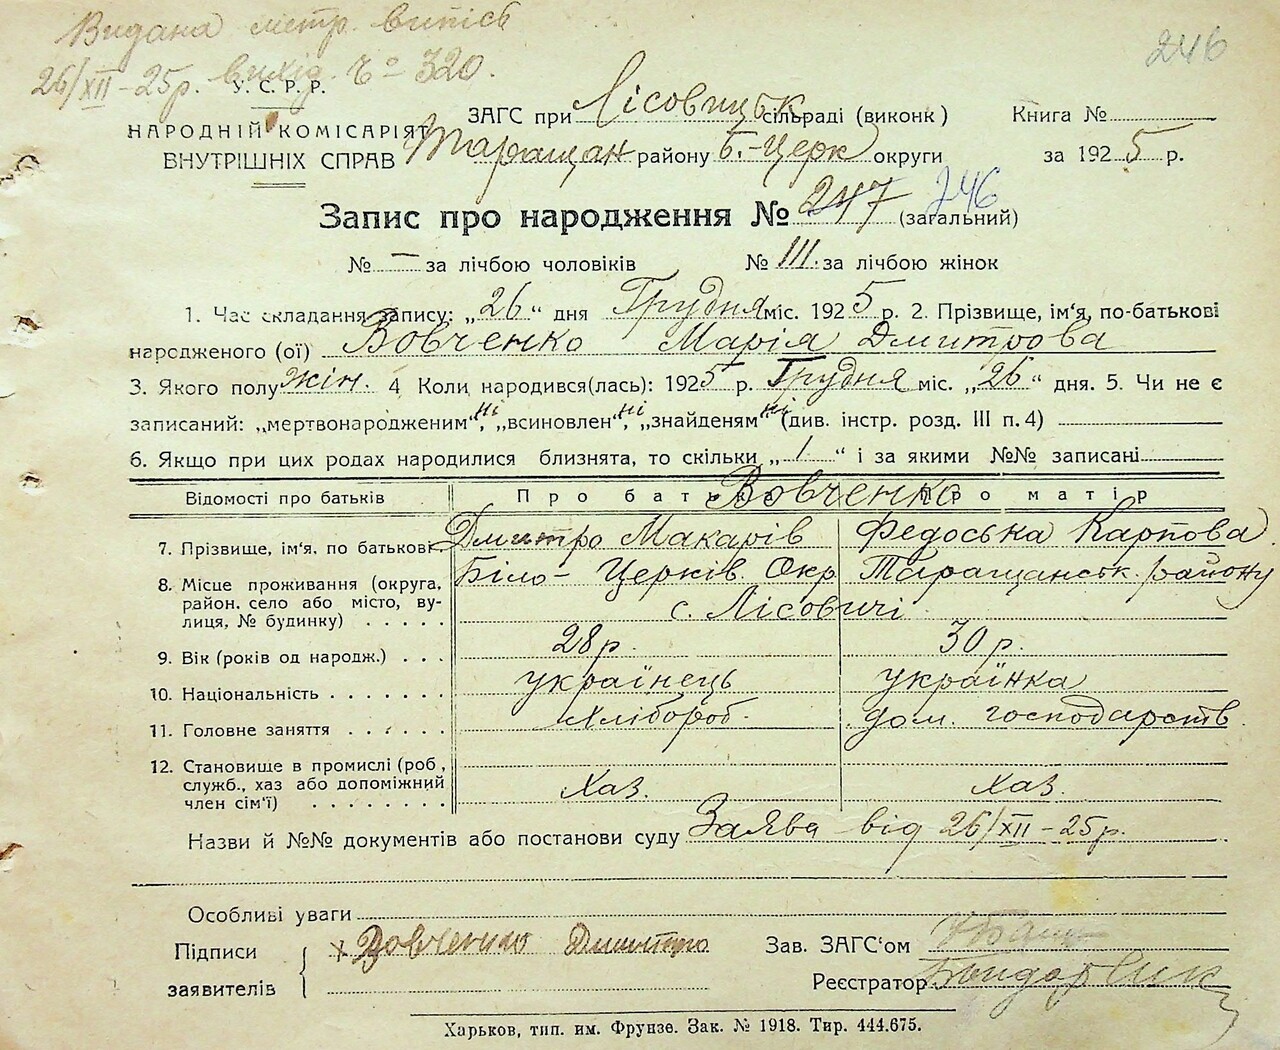 Видана метр. випісь
246
26/XII-25р. вихід. Чо 320.
У.С.Р.Р.
НАРОДНІЙ КОМІСАРІЯТ
ВНУТРІШНІХ СПРАВ
ЗАГС при Лісовицьк сільраді (виконк) Книга №
Таращан району Б.-Церк округи за 1925 р.
Запис про народження № 247 246 (загальний)
№ — за лічбою чоловіків № 111. за лічбою жінок
1. Час складання запису: „26" дня Грудня міс. 1925 р. 2. Прізвище, ім'я, по-батькові
народженого (ої) Вовченко Марія Дмитрова
3. Якого полу жін. 4 Коли народився(лась): 1925 р. Грудня міс. „26" дня. 5. Чи не є
записаний: „мертвонародженим" ні, „всиновлен" ні, „знайденям" ні (див. інстр. розд. III п. 4)
6. Якщо при цих родах народилися близнята, то скільки „1" і за якими №№ записані
Відомості про батьків Про батька Про матір
Вовченко
7. Прізвище, ім'я, по батькові Дмитро Макарів Федоська Карпова.
8. Місце проживання (округа, Біло-Церків. Окр Таращанськ. району
район, село або місто, ву- с. Лісовичі
лиця, № будинку)
9. Вік (років од народж.) 28 р. 30 р.
10. Національність українець українка
11. Головне заняття Хлібороб. дом. господарств.
12. Становище в промислі (роб.,
служб., хаз або допоміжний Хаз. Хаз.
член сім'ї)
Назви й №№ документів або постанови суду Заява від 26/XII-25р.
Особливі уваги
Підписи Вовченко Дмитро Зав. ЗАГС'ом
заявителів Реєстратор
Харьков, тип. им. Фрунзе. Зак. № 1918. Тир. 444.675.